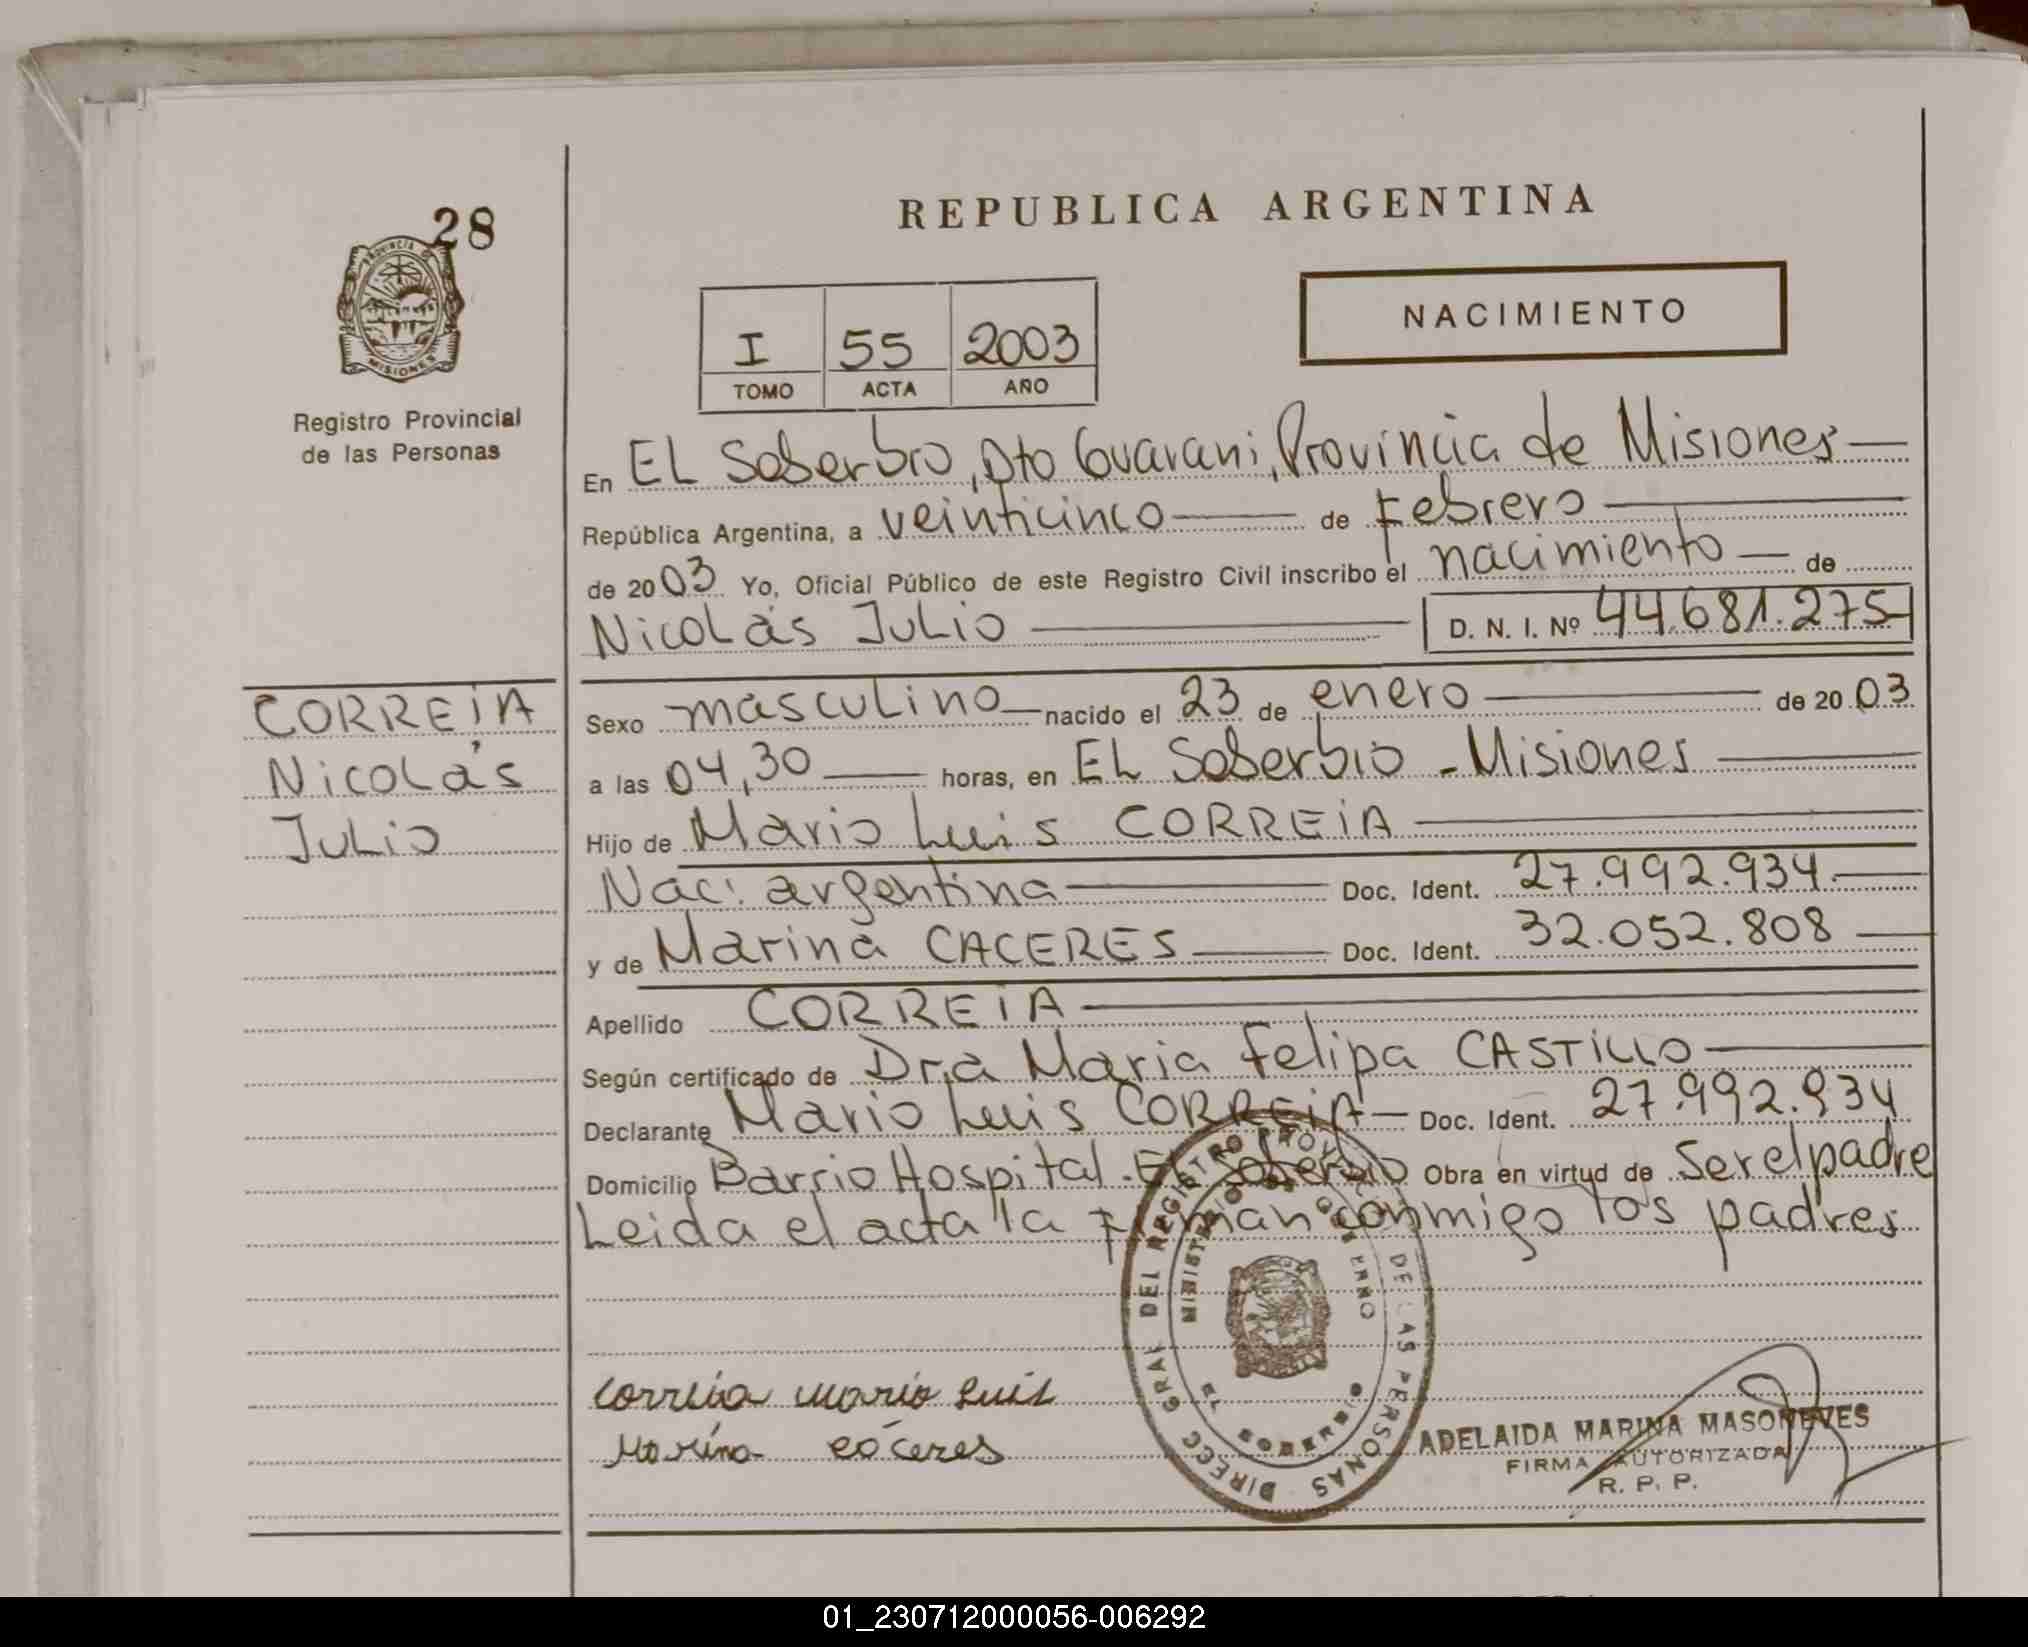 28
PROVINCIA DE
MISIONES
Registro Provincial
de las Personas
REPUBLICA ARGENTINA
I 55 2003
TOMO ACTA AÑO
NACIMIENTO
En EL Soberbio, Dto Guarani, Provincia de Misiones
República Argentina, a veinticinco de Febrero
de 2003 Yo, Oficial Público de este Registro Civil inscribo el nacimiento de
Nicolás Julio D. N. I. Nº 44.681.275
CORREIA
Nicolás
Julio
Sexo masculino nacido el 23 de enero de 2003
a las 04,30 horas, en EL Soberbio - Misiones
Hijo de Mario Luis CORREIA
Nac: argentina Doc. Ident. 27.992.934
y de Marina CACERES Doc. Ident. 32.052.808
Apellido CORREIA
Según certificado de Dra Maria Felipa CASTILLO
Declarante Mario Luis CORREIA Doc. Ident. 27.992.934
Domicilio Barrio Hospital. El Soberbio Obra en virtud de Ser el padre
Leida el acta la firman conmigo los padres
DIRECC GRAL DEL REGISTRO PROV DE LAS PERSONAS
MINISTERIO DE GOBIERNO
Correia mario luis
Marina cáceres
ADELAIDA MARINA MASONEVES
FIRMA AUTORIZADA
R. P. P.
01_230712000056-006292